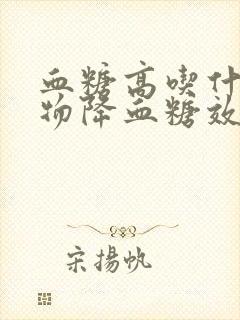 血糖高喫什
物降血糖效
宋揚帆